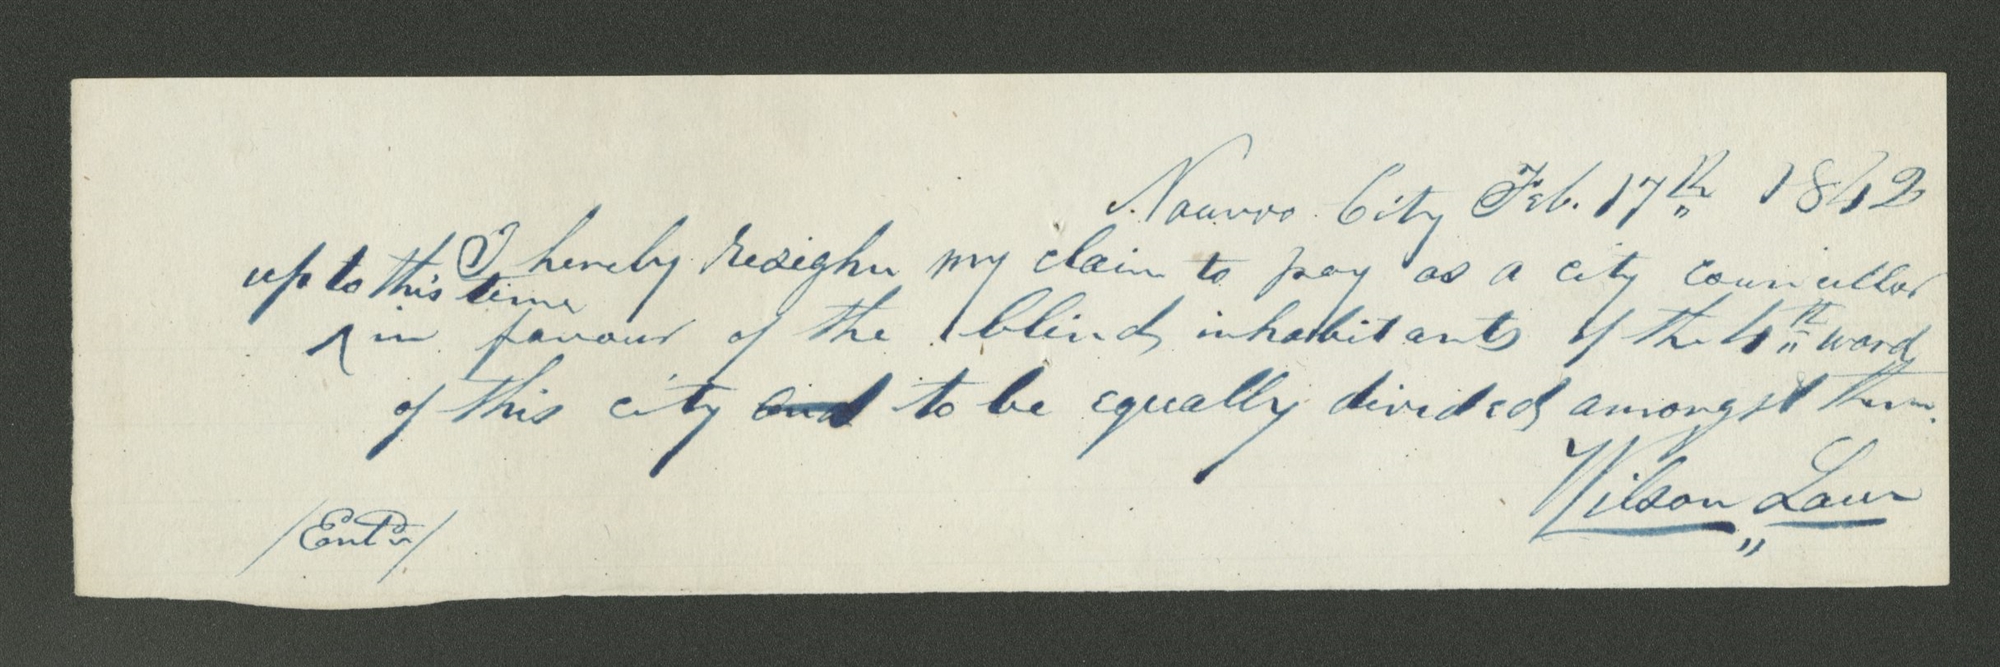 Nauvoo City Feb. 17th 1842
I hereby resighn my claim to pay as a city councellor
up to this time
^ in favour of the blind inhabitants of the 4th ward
of this city and to be equally divided amongst them.
Wilson Law
/Entd/